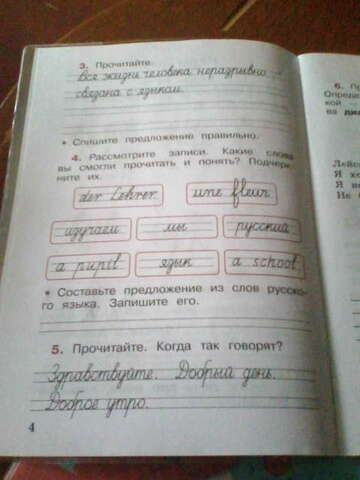 3. Прочитайте.
Вся жизнь человека неразрывно
связана с языком.
• Спишите предложение правильно.
4. Рассмотрите записи. Какие слова
вы смогли прочитать и понять? Подчерк-
ните их.
der Lehrer une fleur
изучаем мы русский
a pupil язык a school
• Составьте предложение из слов русско-
го языка. Запишите его.
5. Прочитайте. Когда так говорят?
Здравствуйте. Добрый день.
Доброе утро.
4
6.
Опреде
кой
ва
Я
Я
Не